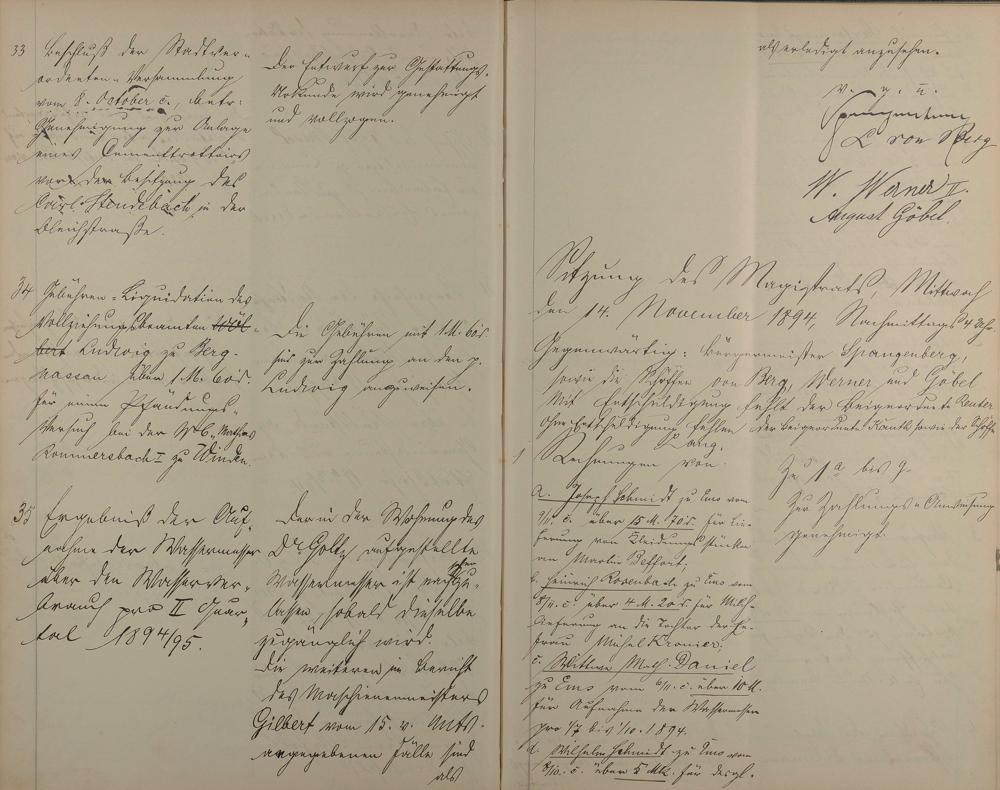 33 Beschluß der Stadtver-
ordneten-Versammlung
vom 8. October c., betr:
Genehmigung zur Anlage
eines Cementtrottoirs
vor der Besitzung des
Carl Stendebach in der
Bleichstraße.
Der Entwurf zur Gestattungs-
Urkunde wird genehmigt
und vollzogen.
34 Gebühren-Liquidation des
Vollziehungsbeamten
Ludwig zu Berg-
nassau über 1 M. 60 d.
für einen Pfändungs-
versuch bei der Mathias
Kommersbach I zu Winden.
Die Gebühren mit 1 M. 60 d.
sind zur Zahlung an den p.
Ludwig anzuweisen.
35 Ergebniß der Auf-
nahme der Wassermesser
über den Wasserver-
brauch pro II Quar-
tal 1894/95.
Der in der Wohnung des
Dr Goltz aufgestellte
Wassermesser ist nachsehen zu
lassen, sobald dieselbe
zugänglich wird.
Die weiteren im Bericht
des Maschinenmeisters
Gilbert vom 15. v. Mts.
angegebenen Fälle sind
als
als erledigt anzusehen.
v. g. u.
Spangenberg
L von Berg
W. Werner II.
August Göbel.
Sitzung des Magistrats, Mittwoch
den 14. November 1894, Nachmittags 4 Uhr.
Gegenwärtig: Bürgermeister Spangenberg,
sowie die Schöffen von Berg, Werner und Göbel
Mit Entschuldigung fehlt der Beigeordnete Reuter
Ohne Entschuldigung fehlen der Beigeordnete Kauth sowie der Schöffe
Lang.
1 Rechnungen von
a. Joseph Schmidt zu Ems vom
9/11. c. über 15 M. 70 d. für Lie-
ferung von Kleidungsstücken
an Martin Seffort;
b. Heinrich Rosenbach zu Ems vom
8/11. c. über 4 M. 20 d. für Milch-
lieferung an die Tochter der Ehe-
frau Michel Kronier;
c. Wittwe Math. Daniel
zu Ems vom 6/11. c. über 10 M.
für Aufnahme der Wassermesser
pro 1/7 bis 1/10. 1894.
d. Wilhelm Schmidt zu Ems vom
8/10. c. über 5 Mk. für desgl.
Zu 1 a bis g.
Zur Zahlungs-Anweisung
genehmigt.